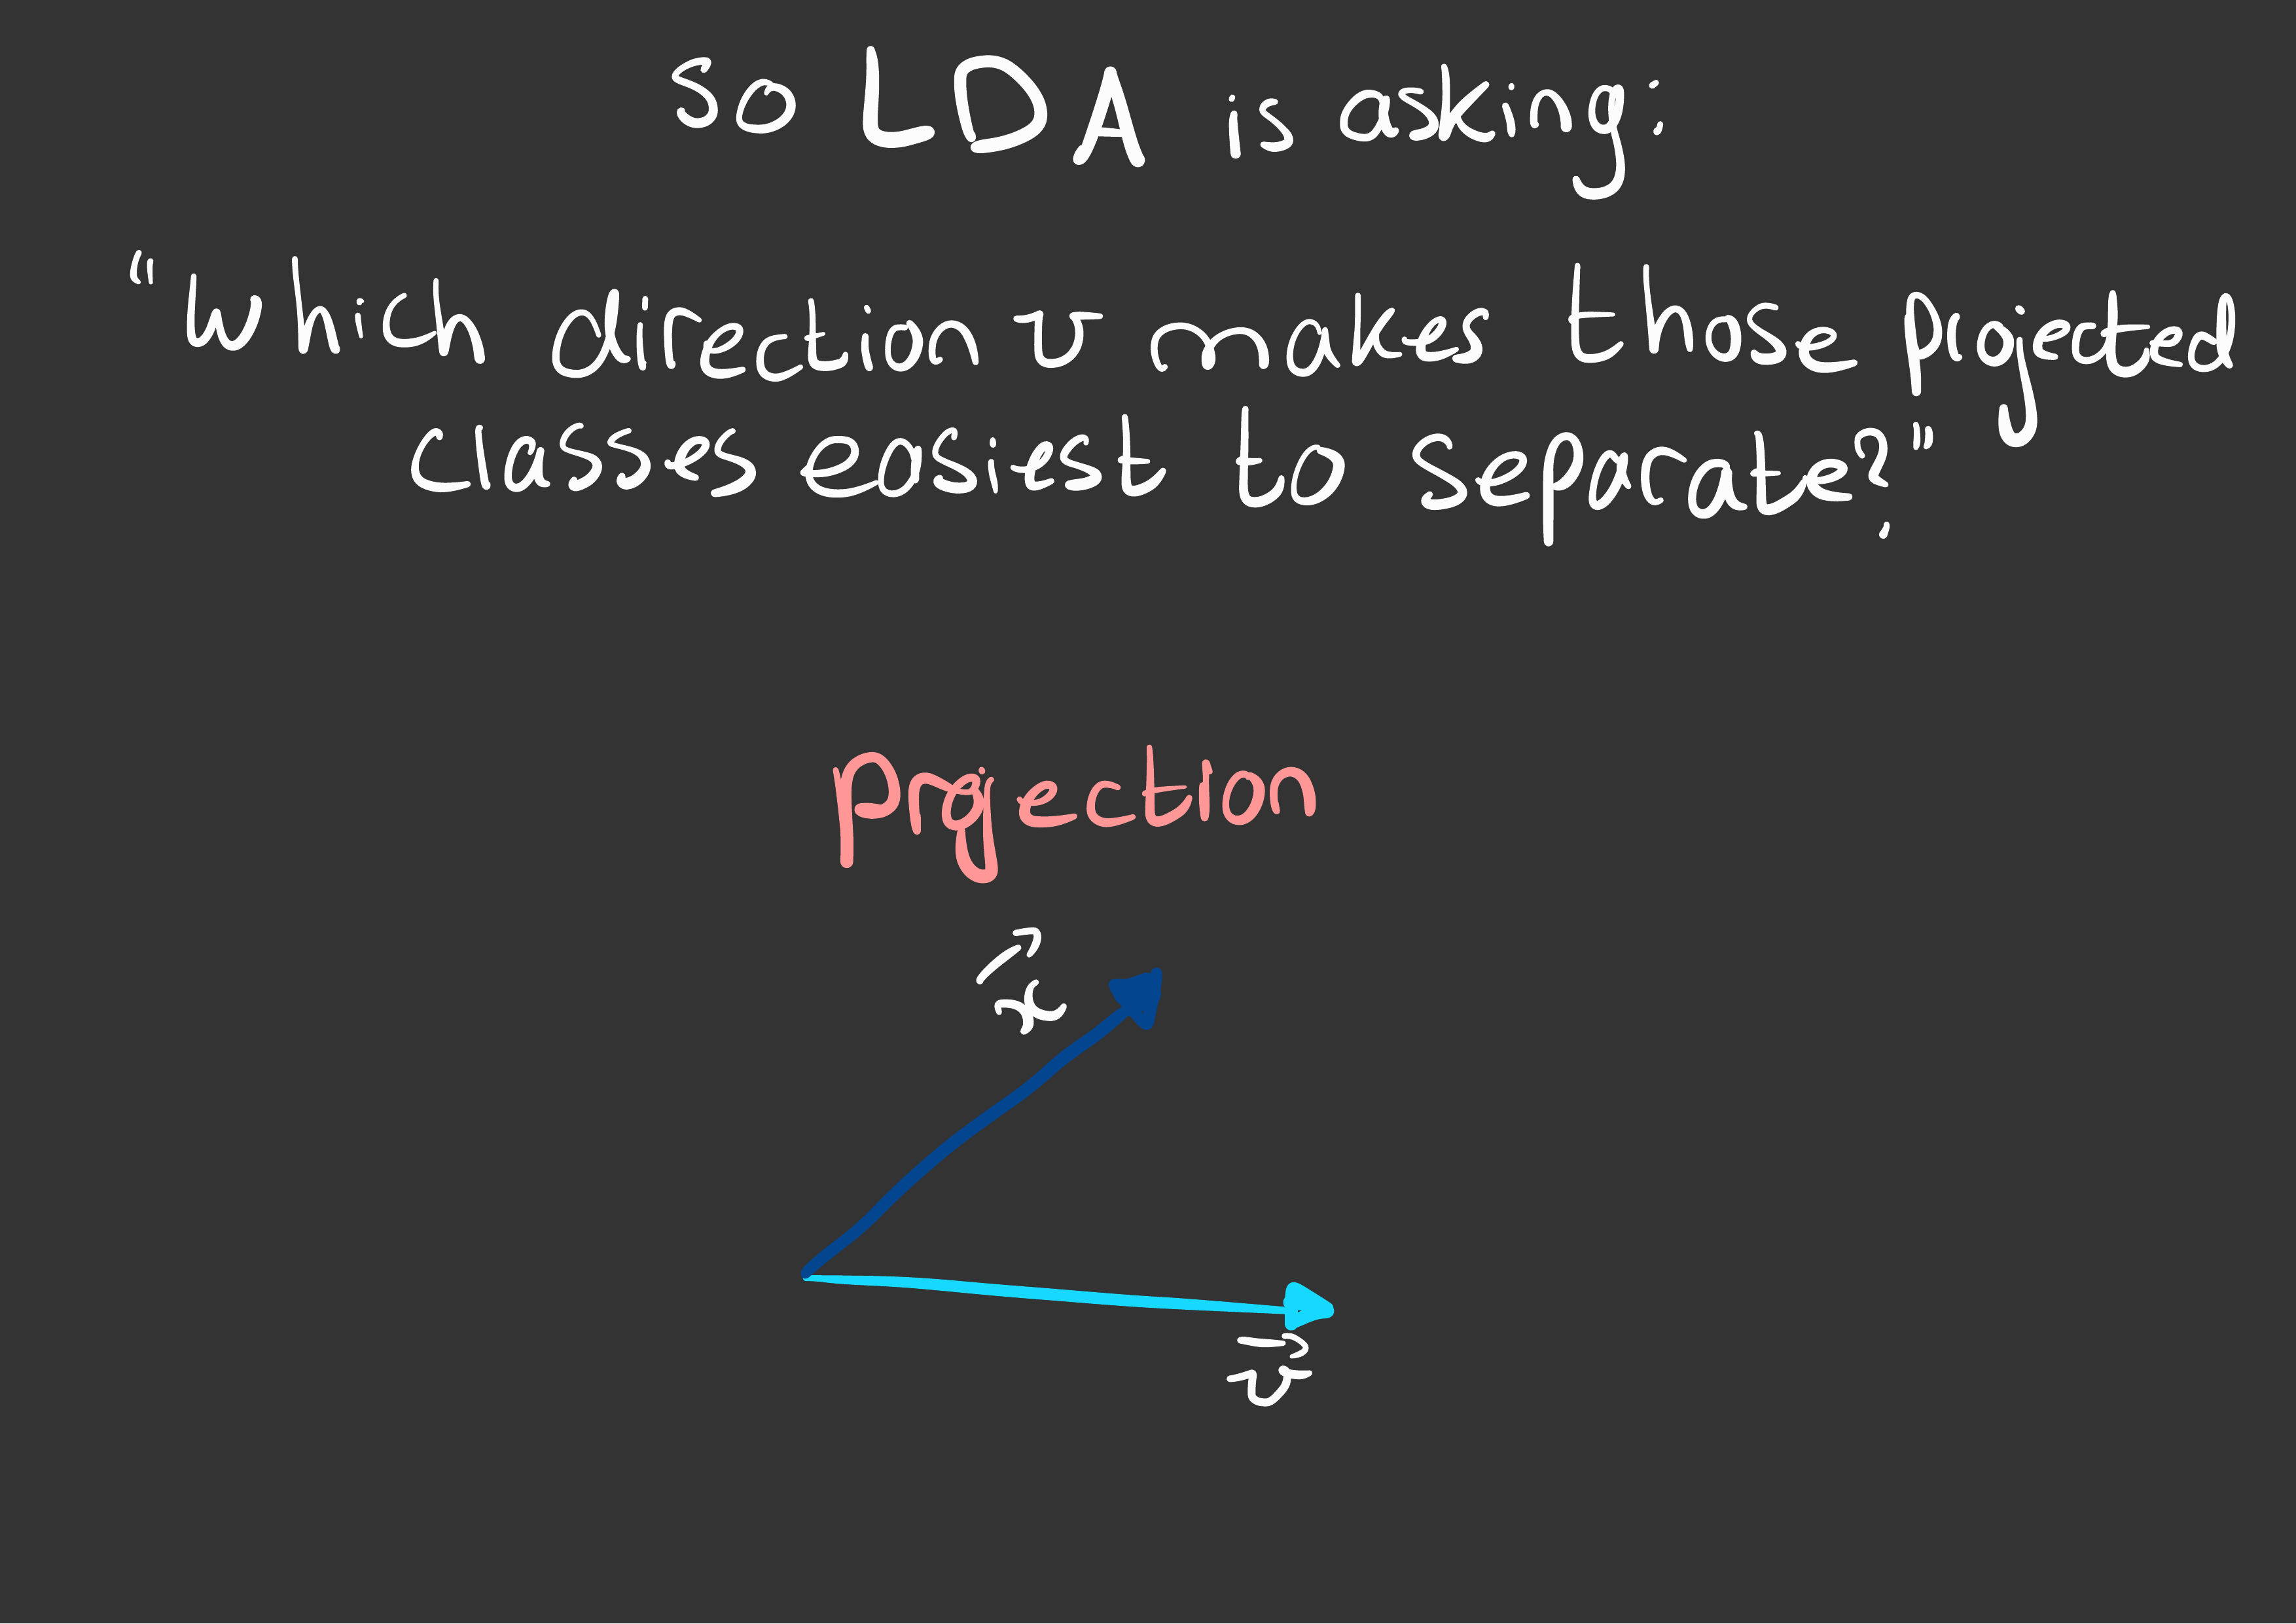 So LDA is asking:
“Which direction v makes those projected
classes easiest to separate?”
projection
x⃗
v⃗